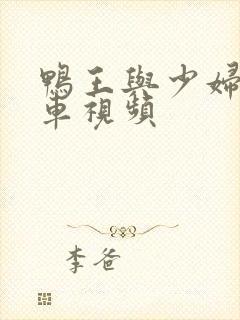 鴨王與少婦
車視頻
李爸